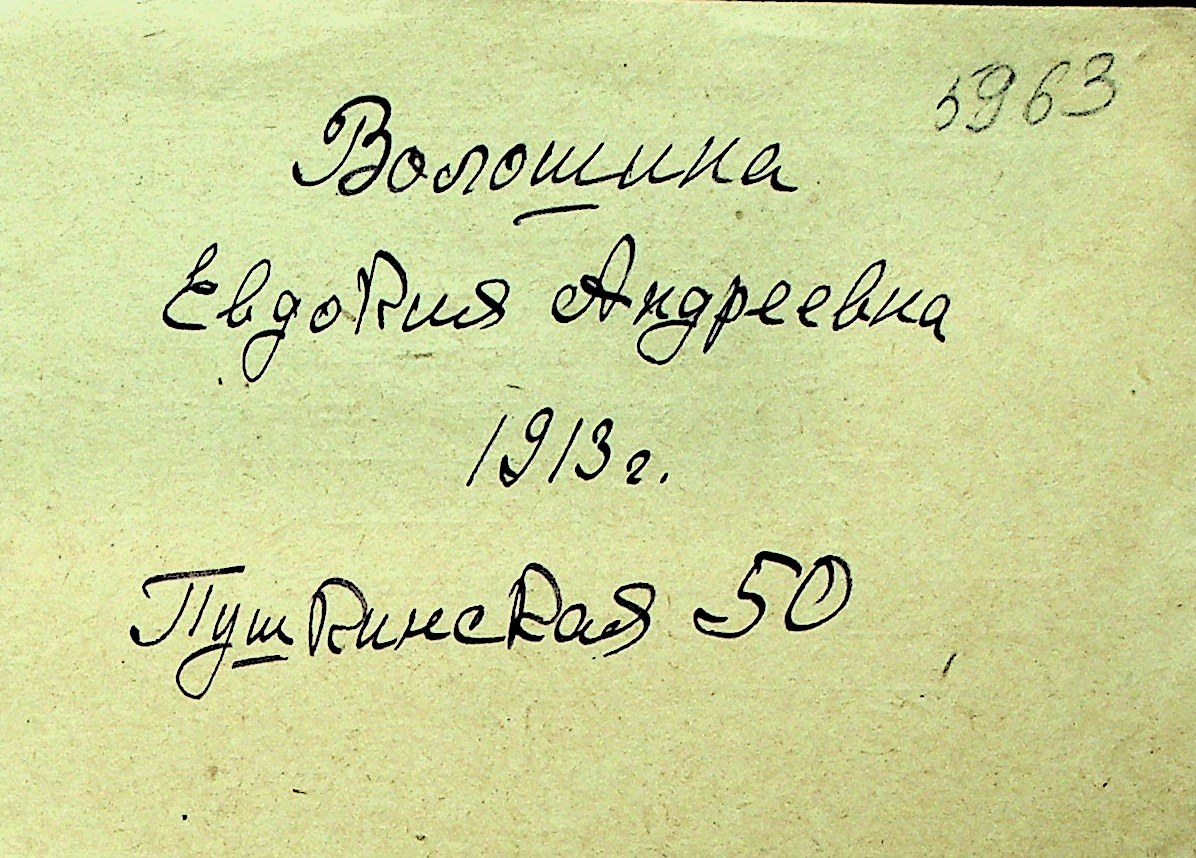 5963
Волошина
Евдокия Андреевна
1913 г.
Пушкинская 50